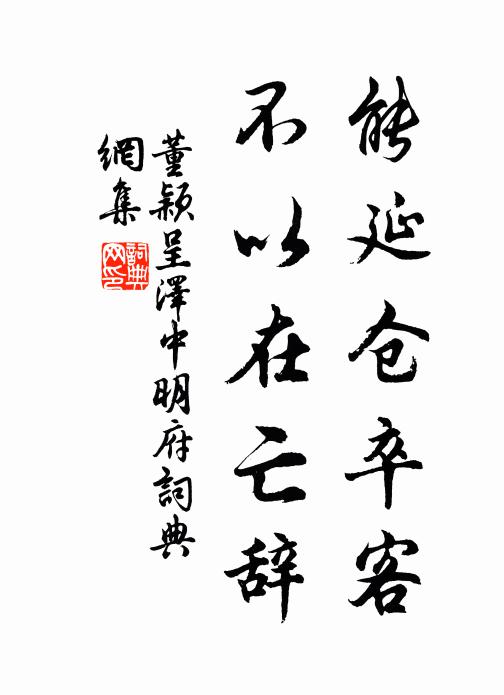 能延仓卒客
不以在亡辞
董颖呈澤中明府詞典
網集
詞典
网印